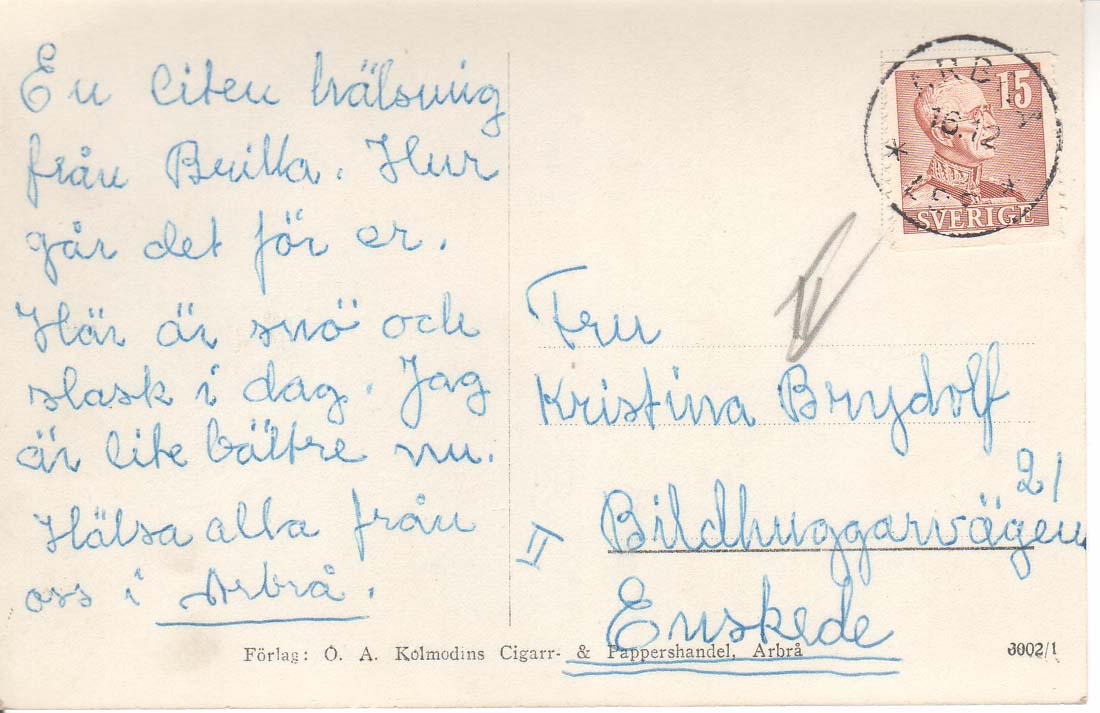 En liten hälsning
från Britta. Hur
går det för er.
Här är snö och
slask i dag. Jag
är lite bättre nu.
Hälsa alla från
oss i Arbrå.
15
SVERIGE
ARBRÅ
16.12
Fru
Kristina Brydolf
21
Bildhuggarvägen
II
Enskede
Förlag: O. A. Kolmodins Cigarr- & Pappershandel, Arbrå
3002/1